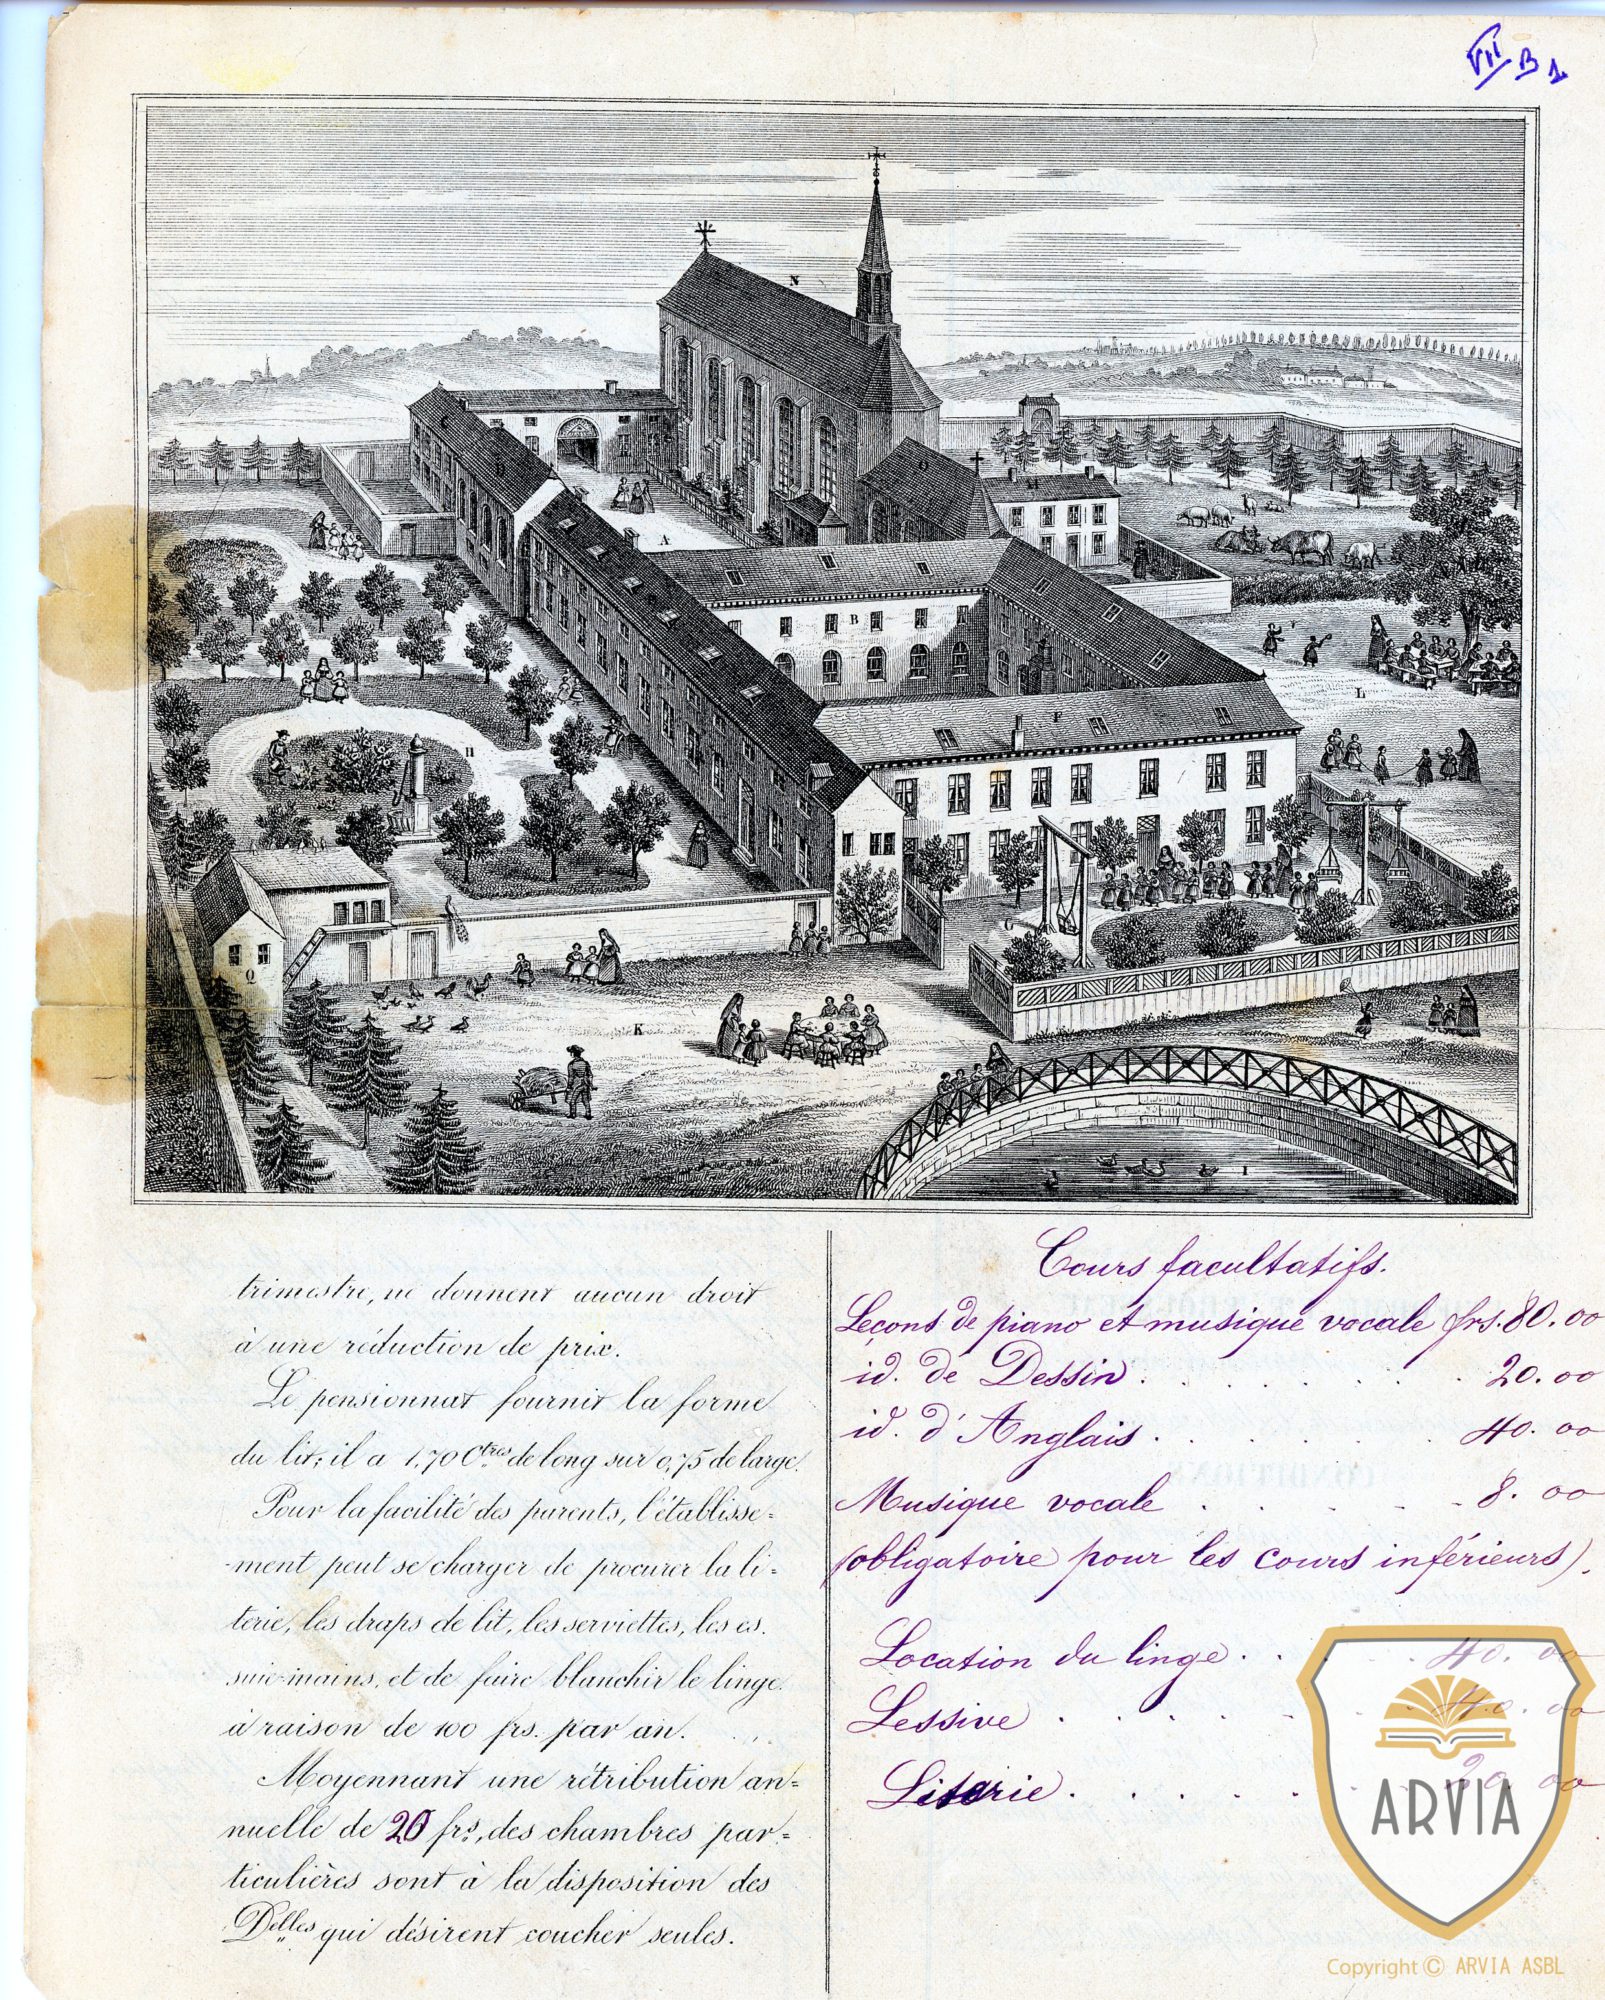 VII B 1
N
C
D
O
M
A
B
E
F
H
L
G
Q
K
I
trimestre, ne donnent aucun droit
à une réduction de prix.
Le pensionnat fournit la forme
du lit; il a 1,70 Ctres de long sur 0,75 de large.
Pour la facilité des parents, l'établisse=
-ment peut se charger de procurer la li-
terie, les draps de lit, les serviettes, les es-
suie-mains, et de faire blanchir le linge
à raison de 100 frs. par an.
Moyennant une rétribution an=
nuelle de 20 frs, des chambres par=
ticulières sont à la disposition des
Delles qui désirent coucher seules.
Cours facultatifs.
Leçons de piano et musique vocale frs. 80.00
id. de Dessin . . . . . . . 20.00
id. d'Anglais . . . . . . 40.00
Musique vocale . . . . . - 8.00
(obligatoire pour les cours inférieurs).
Location du linge . . . . . 40.00
Lessive . . . . . . . 40.00
Literie . . . . . . . 20.00
ARVIA
Copyright © ARVIA ASBL